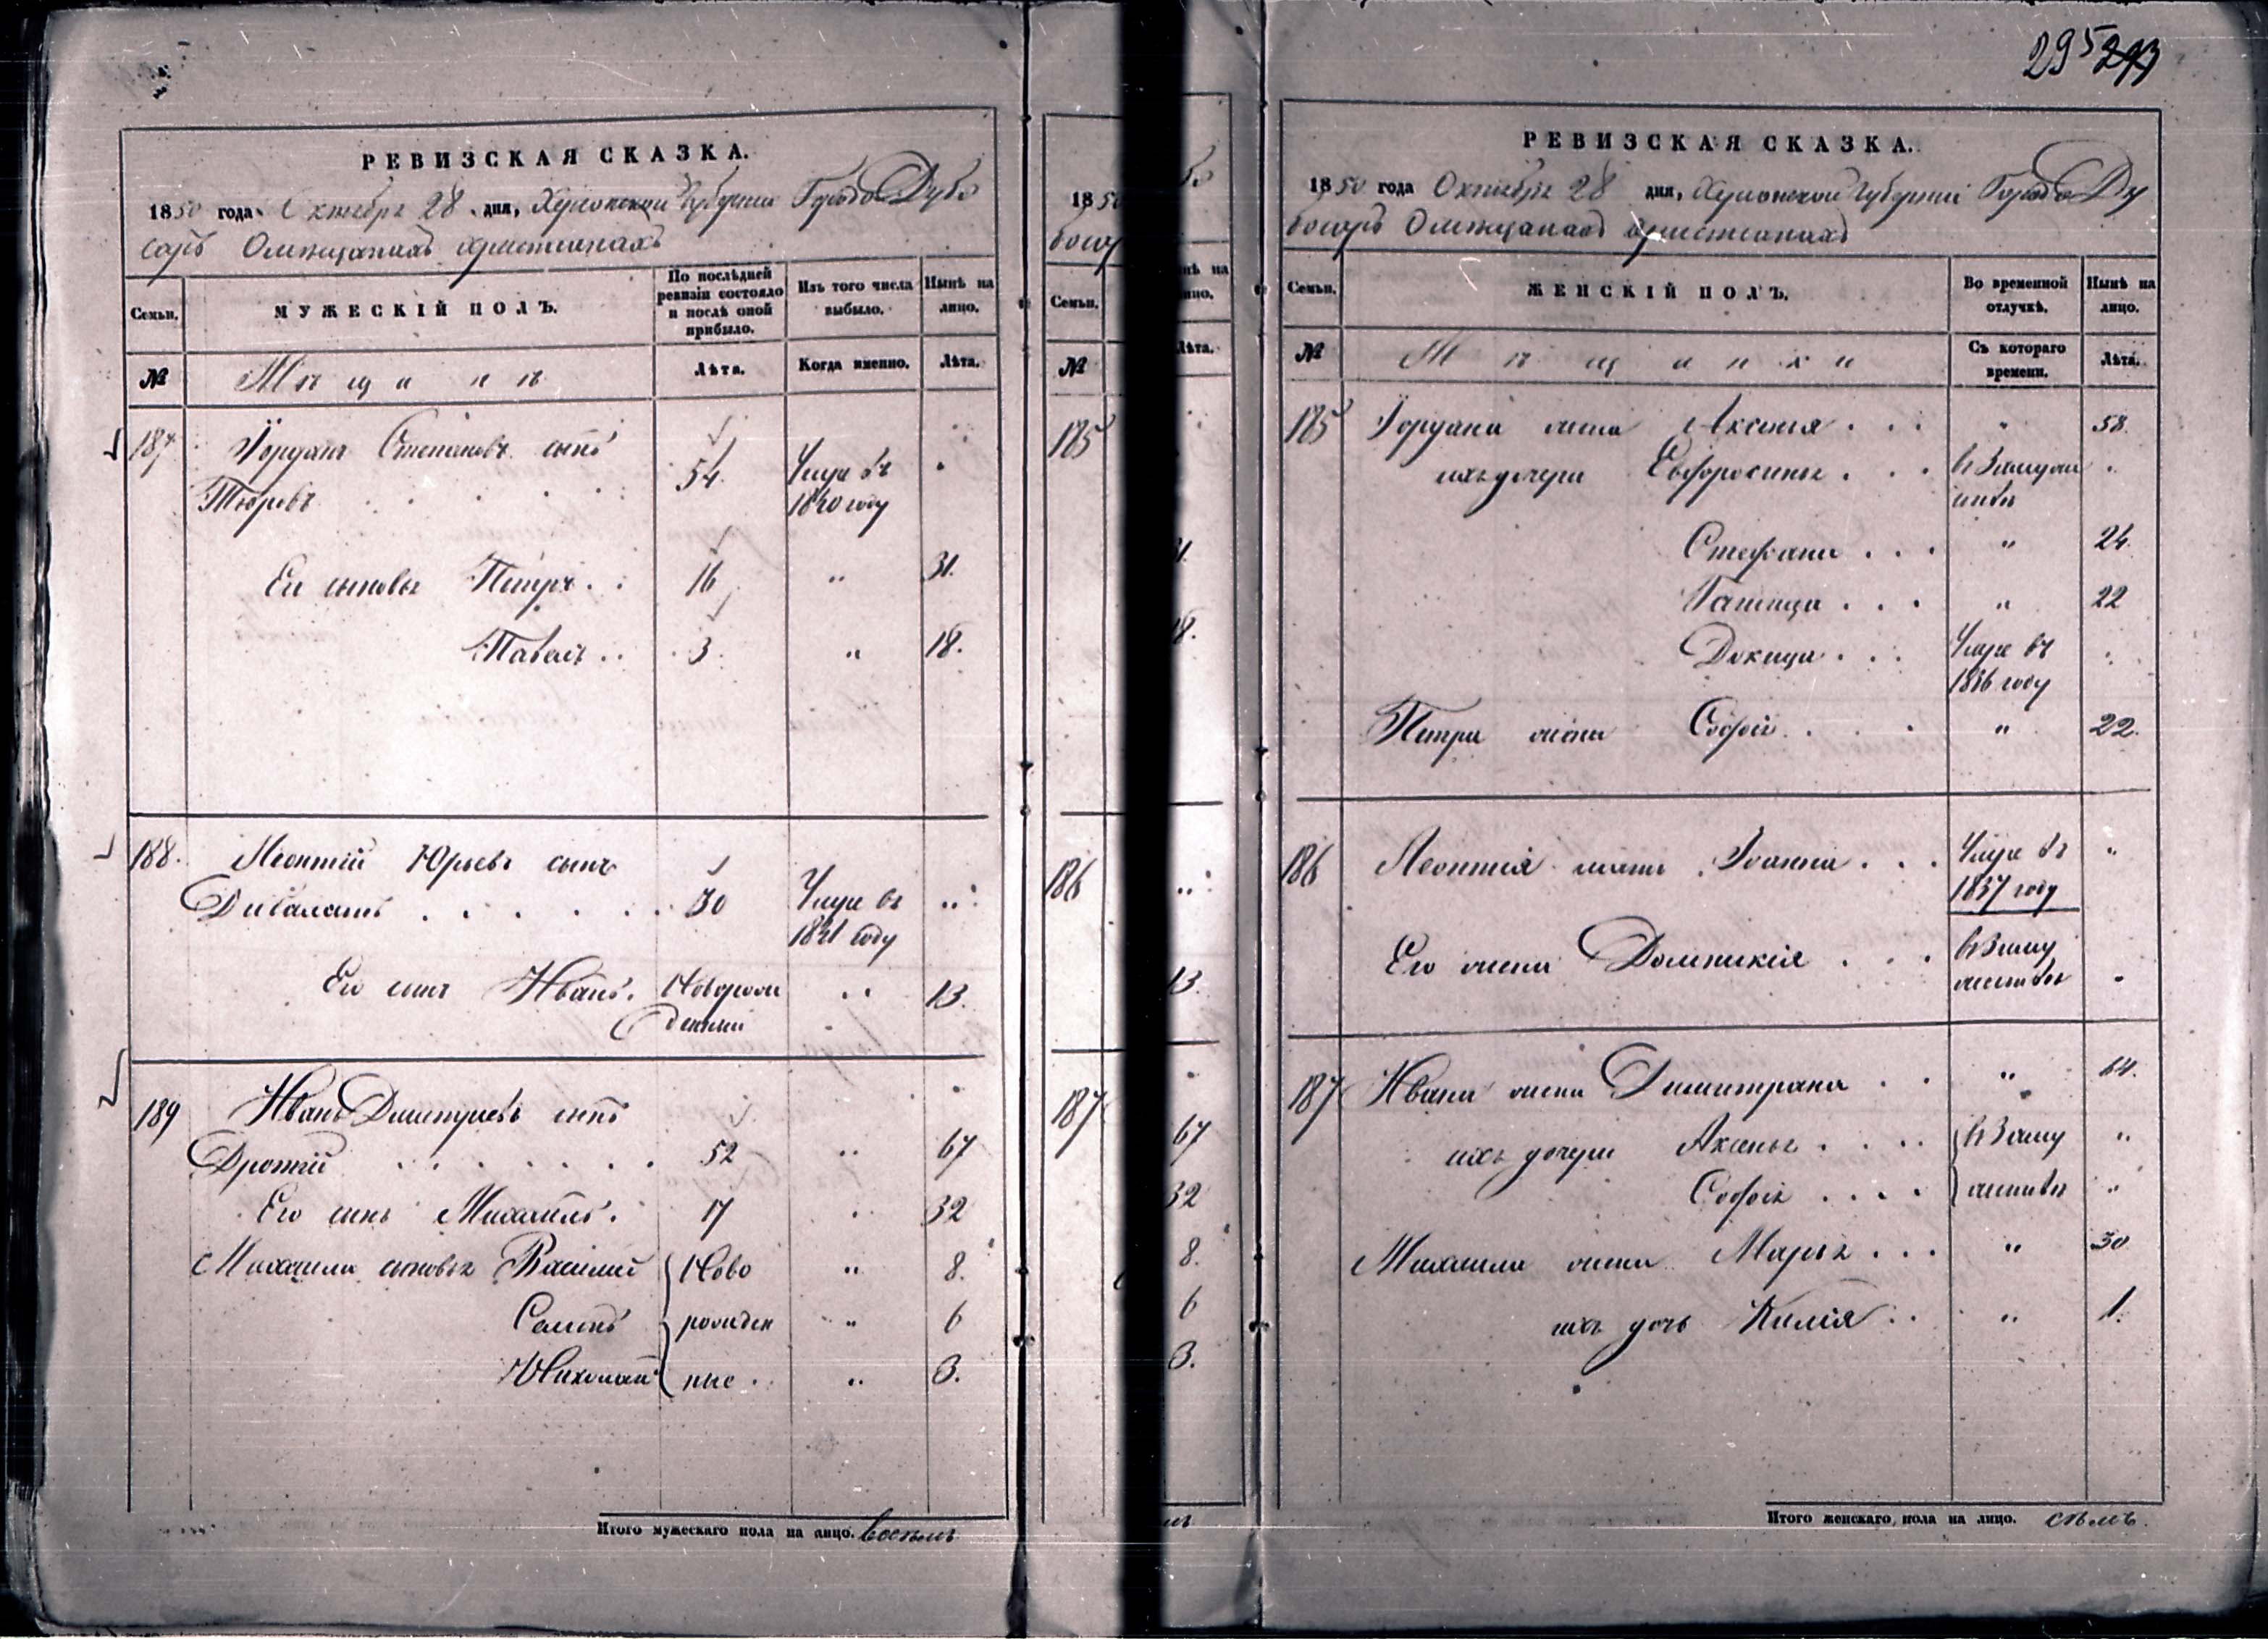 295
РЕВИЗСКАЯ СКАЗКА.
1850 года Октября 28 дня, Херсонской Губернии Города Дубо
саръ О мещанахъ христианахъ
Семьи.
МУЖЕСКІЙ ПОЛЪ.
По послѣдней ревизіи состояло и послѣ оной прибыло.
Изъ того числа выбыло.
Нынѣ на лицо.
№
Мѣщанѣ
Лѣта.
Когда именно.
Лѣта.
187
Іорданъ Степановъ сынъ
Тюревъ 54 Умре въ
1840 году
Его сыновья Петръ 16 " 31.
Павелъ 3 " 18.
188. Леонтій Юрьевъ сынъ
30 Умре въ "
1841 году
Его сынъ Иванъ. Новорож " 13.
денный
189 Иванъ Димитріевъ сынъ
Дротій 52 " 67
Его сынъ Михаилъ. 17 " 32
Михаила сыновья Василий Ново " 8.
Семенъ рожден " 6
Николай ные " 3.
Итого мужескаго пола на лицо. восемь
1850
босар
Семьи.
№
185
186
187
нѣ на
ицо.
Лѣта.
31.
18.
13.
67
32
8.
6
3.
РЕВИЗСКАЯ СКАЗКА.
1850 года Октября 28 дня, Херсонской Губерніи Города Ду
босаръ О мещанахъ христианахъ
Семьи.
ЖЕНСКІЙ ПОЛЪ.
Во временной отлучкѣ.
Нынѣ на лицо.
№
Мѣщанки
Съ котораго времени.
Лѣта.
185 Іордана жена Аксенія " 58
ихъ дочери Евфросинья въ Замуж
Стефани " 24
" 22
Докица Умре въ
1836 году
Петра жена Софія " 22.
186 Леонтія мать Іоанна Умре въ "
1837 году
Его жена Домникія въ Заму
жествѣ
187 Ивана жена Димитрана " 64.
ихъ дочери Аксенья въ Заму "
Софія жествѣ "
Михаила жена Марья " 30
ихъ дочь Килія " 1.
Итого женскаго пола на лицо. семь.